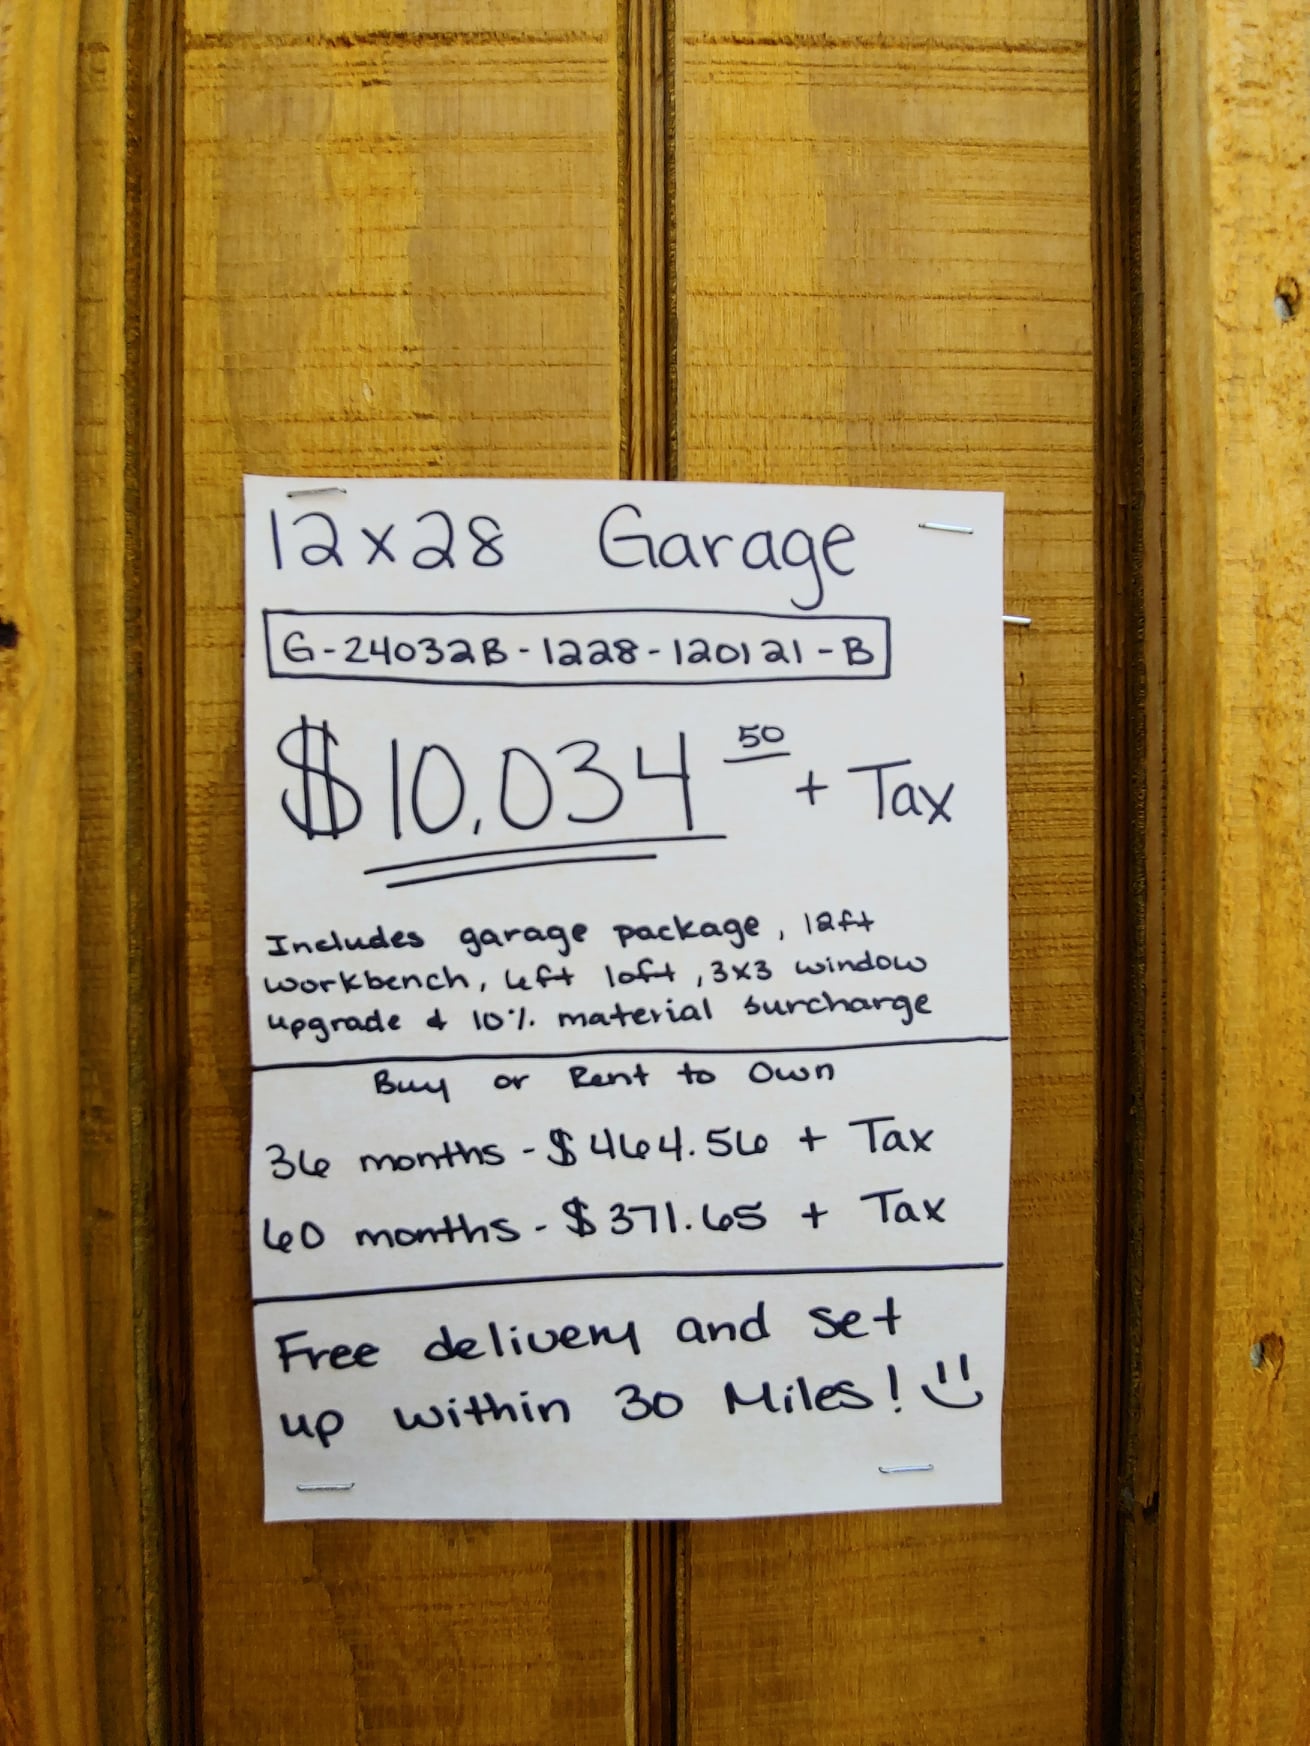 12x28 Garage
G-24032B-1228-120121-B
$10,034 50 + Tax
Includes garage package, 12ft
workbench, left loft, 3x3 window
upgrade & 10% material surcharge
Buy or Rent to Own
36 months - $464.56 + Tax
60 months - $371.65 + Tax
Free delivery and set
up within 30 Miles!